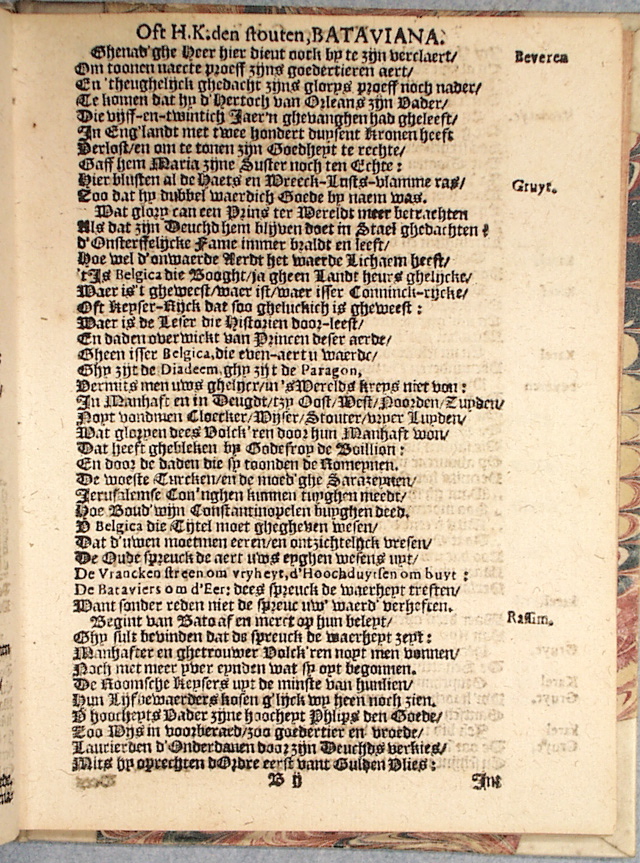 Oft H.K. den stouten, BATAVIANA.
Ghenad'ghe Heer hier dient oock by te zijn verclaert/ Beveren
Om toonen naecte proeff zijns goedertieren aert/
En 'theughelijck ghedacht zijns glorys proeff noch nader/
Te komen dat hy d'Hertoch van Orleans zijn Vader/
Die vijff-en-twintich Jaer'n ghevanghen had gheleeft/
In Eng'landt met twee hondert duysent Kronen heeft
Verlost/en om te tonen zijn Goedheyt te rechte/
Gaff hem Maria zijne Suster noch ten Echte:
Hier blusten al de Haets en Wreeck-Lusts-vlamme ras/ Gruyt.
Zoo dat hy dubbel waerdich Goede by naem was.
Wat glory can een Prins ter Wereldt meer betrachten
Als dat zijn Deuchd hem blijven doet in Stael ghedachten
d'Onsterffelijcke Fame immer braldt en leeft/
Hoe wel d'onwaerde Aerdt het waerde Lichaem heeft/
't Is Belgica die Booght/ja gheen Landt heurs ghelijcke/
Waer is't gheweest/waer ist/waer isser Conninck-rijcke/
Oft Keyser-Rijck dat soo gheluckich is gheweest:
Waer is de Leser die Historien door-leest/
En daden overwickt van Princen deser aerde/
Gheen isser Belgica, die even-aert u waerde/
Ghy zijt de Diadeem, ghy zijt de Paragon,
Vermits men uws ghelijcx/in 's Werelds kreys niet von:
In Manhaft en in Deugdt/tzy Oost/West/Noorden/Zuyden/
Noyt vondmen Cloecker/Wijser/Stouter/vryer Luyden/
Wat gloryen dees Volck'ren door hun Manhaft won/
Dat heeft ghebleken by Godefroy de Boillion:
En door de daden die sy toonden de Romeynen.
De woeste Turcken/en de moed'ghe Sarazeynen/
Jerusalemse Con'nghen kunnen tuyghen meedt/
Hoe Boud'wijn Constantinopelen buyghen deed.
V Belgica die Tijtel moet ghegheven wesen/
Dat d'uwen moetmen eeren/en ontzichtelijck vresen/
De Oude spreuck de aert uws eyghen wesens uyt/
De Vrancken streen om vryheyt, d'Hoochduytsen om buyt:
De Bataviers om d'Eer: dees spreuck de waerheyt treften/
Want sonder reden niet de spreuc uw' waerd' verheften.
Begint van Bato af en merct op hun beleyt/ Rassim.
Ghy sult bevinden dat ds spreuck de waerheyt zeyt:
Manhafter en ghetrouwer Volck'ren noyt men vonnen/
Noch met meer yver eynden wat sy oyt begonnen.
De Roomsche Keysers uyt de minste van hunlien/
Hun Lijfbewaerders kosen g'lijck wy heen noch zien.
V hoocheyts Vader zijne hoocheyt Philips den Goede/
Zoo Wijs in voorberaed/zoo goedertier en vroede/
Laurierden d'Onderdanen door zijn Deuchds verkies/
Mits hy oprechten dOrdre eerst vant Gulden Vlies:
B ij Int